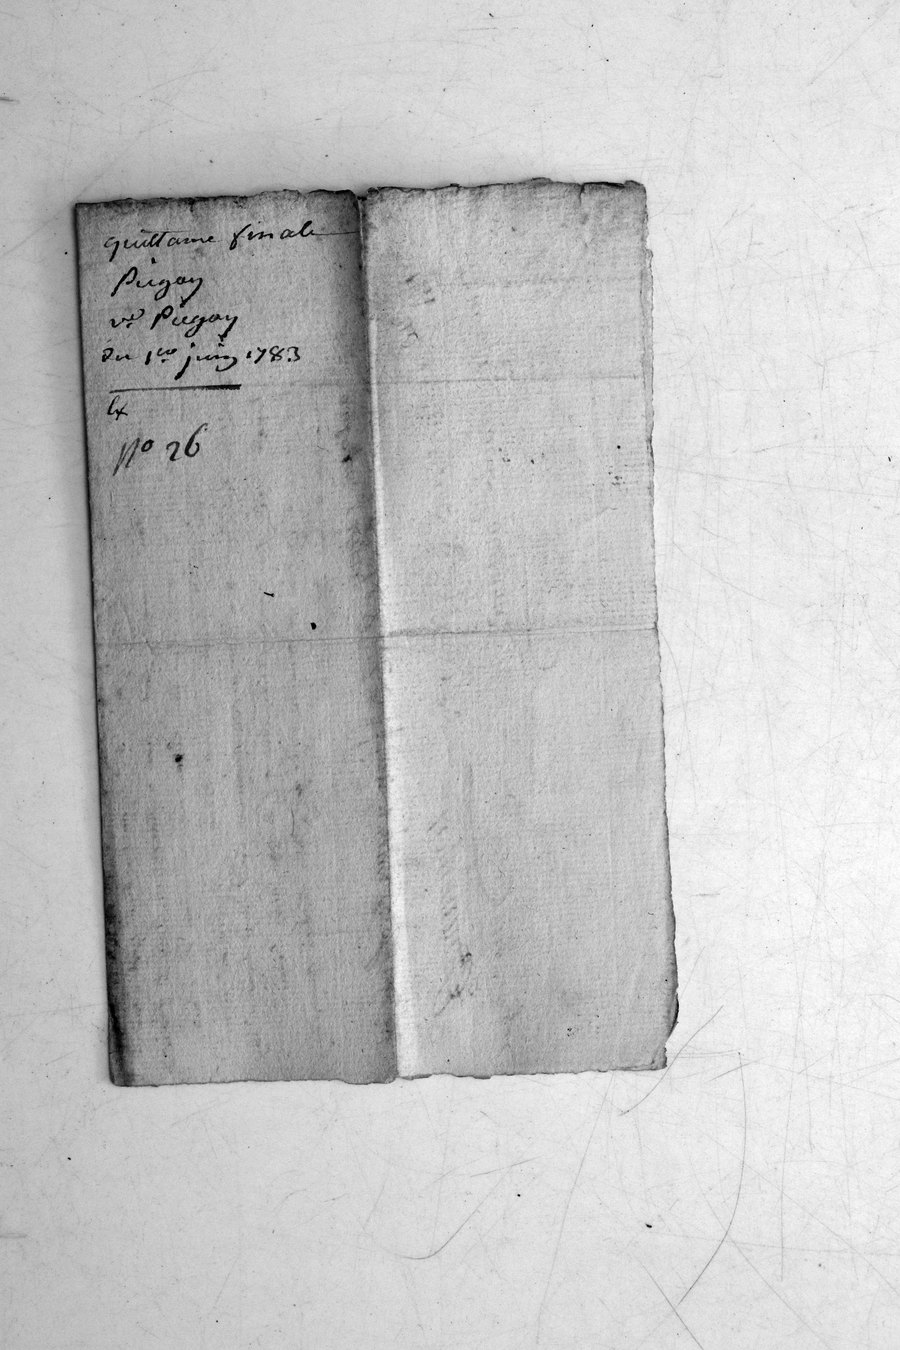 quittance finale
Piégay
vᵉ Piégay
du 1ᵉʳ juin 1783
N° 26